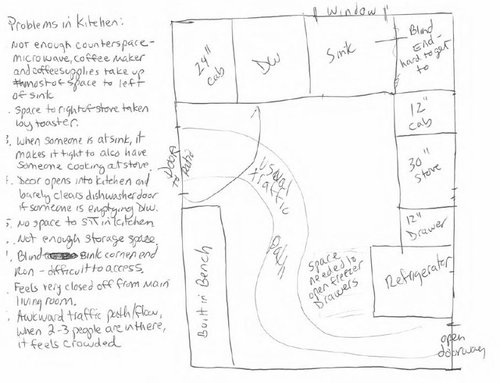 Problems in Kitchen:
Not enough counterspace -
microwave, coffee maker
and coffee supplies take up
most of space to left
of sink
. Space to right of stove taken
by toaster.
3, When someone is at sink, it
makes it tight to also have
someone cooking at stove.
Door opens into kitchen and
barely clears dishwasher door
if someone is emptying DW.
5. No space to sit in kitchen
. Not enough storage space
Blind sink corner end
run - difficult to access.
Feels very closed off from main
living room.
. Awkward traffic path/flow,
when 2-3 people are in there,
it feels crowded.
Window
24"
cab
DW
Sink
Blind
End -
hard to get
to
12"
cab
30"
Stove
12"
Drawer
Refrigerator
Door
to patio
Usual
traffic
path
Built in Bench
space
needed to
open freezer
Drawers
open
doorway